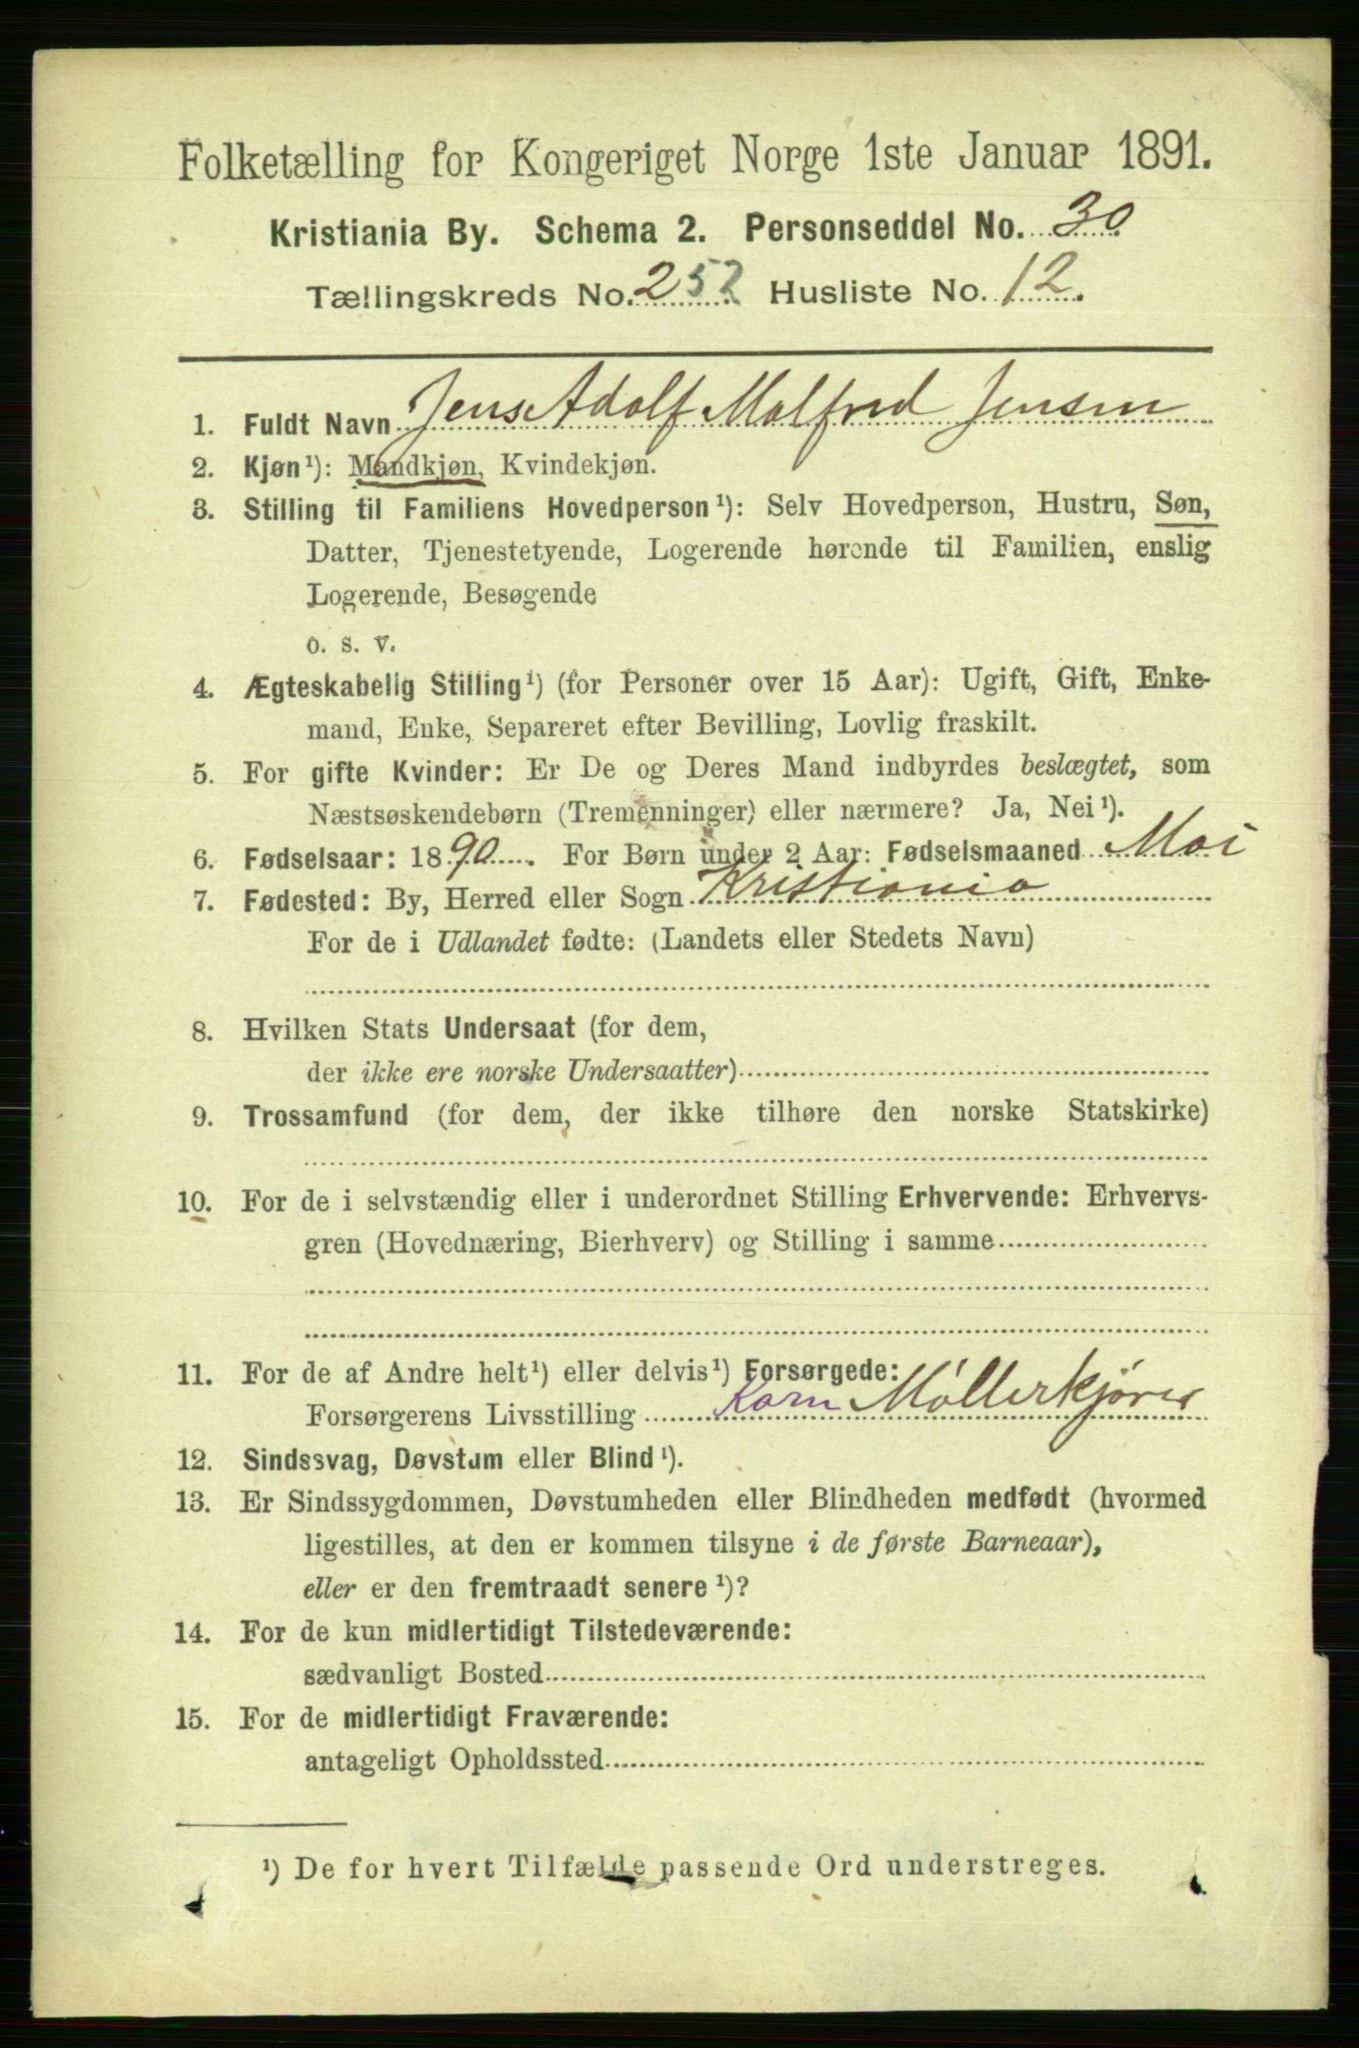 Folketælling for Kongeriget Norge 1ste Januar 1891.
Kristiania By. Schema 2. Personseddel No. 30
Tællingskreds No. 252 Husliste No. 12.
1. Fuldt Navn Jens Adolf Malfred Jensen
2. Kjøn¹): Mandkjøn, Kvindekjøn.
3. Stilling til Familiens Hovedperson¹): Selv Hovedperson, Hustru, Søn,
Datter, Tjenestetyende, Logerende hørende til Familien, enslig
Logerende, Besøgende
o. s. v.
4. Ægteskabelig Stilling¹) (for Personer over 15 Aar): Ugift, Gift, Enke-
mand, Enke, Separeret efter Bevilling, Lovlig fraskilt.
5. For gifte Kvinder: Er De og Deres Mand indbyrdes beslægtet, som
Næstsøskendebørn (Tremenninger) eller nærmere? Ja, Nei¹).
6. Fødselsaar: 1890. For Børn under 2 Aar: Fødselsmaaned Mai
7. Fødested: By, Herred eller Sogn Kristiania
For de i Udlandet fødte: (Landets eller Stedets Navn)
8. Hvilken Stats Undersaat (for dem,
der ikke ere norske Undersaatter)
9. Trossamfund (for dem, der ikke tilhøre den norske Statskirke)
10. For de i selvstændig eller i underordnet Stilling Erhvervende: Erhvervs-
gren (Hovednæring, Bierhverv) og Stilling i samme
11. For de af Andre helt¹) eller delvis¹) Forsørgede:
Forsørgerens Livsstilling Korn Møllerkjører
12. Sindssvag, Døvstum eller Blind¹).
13. Er Sindssygdommen, Døvstumheden eller Blindheden medfødt (hvormed
ligestilles, at den er kommen tilsyne i de første Barneaar),
eller er den fremtraadt senere¹)?
14. For de kun midlertidigt Tilstedeværende:
sædvanligt Bosted
15. For de midlertidigt Fraværende:
antageligt Opholdssted
¹) De for hvert Tilfælde passende Ord understreges.